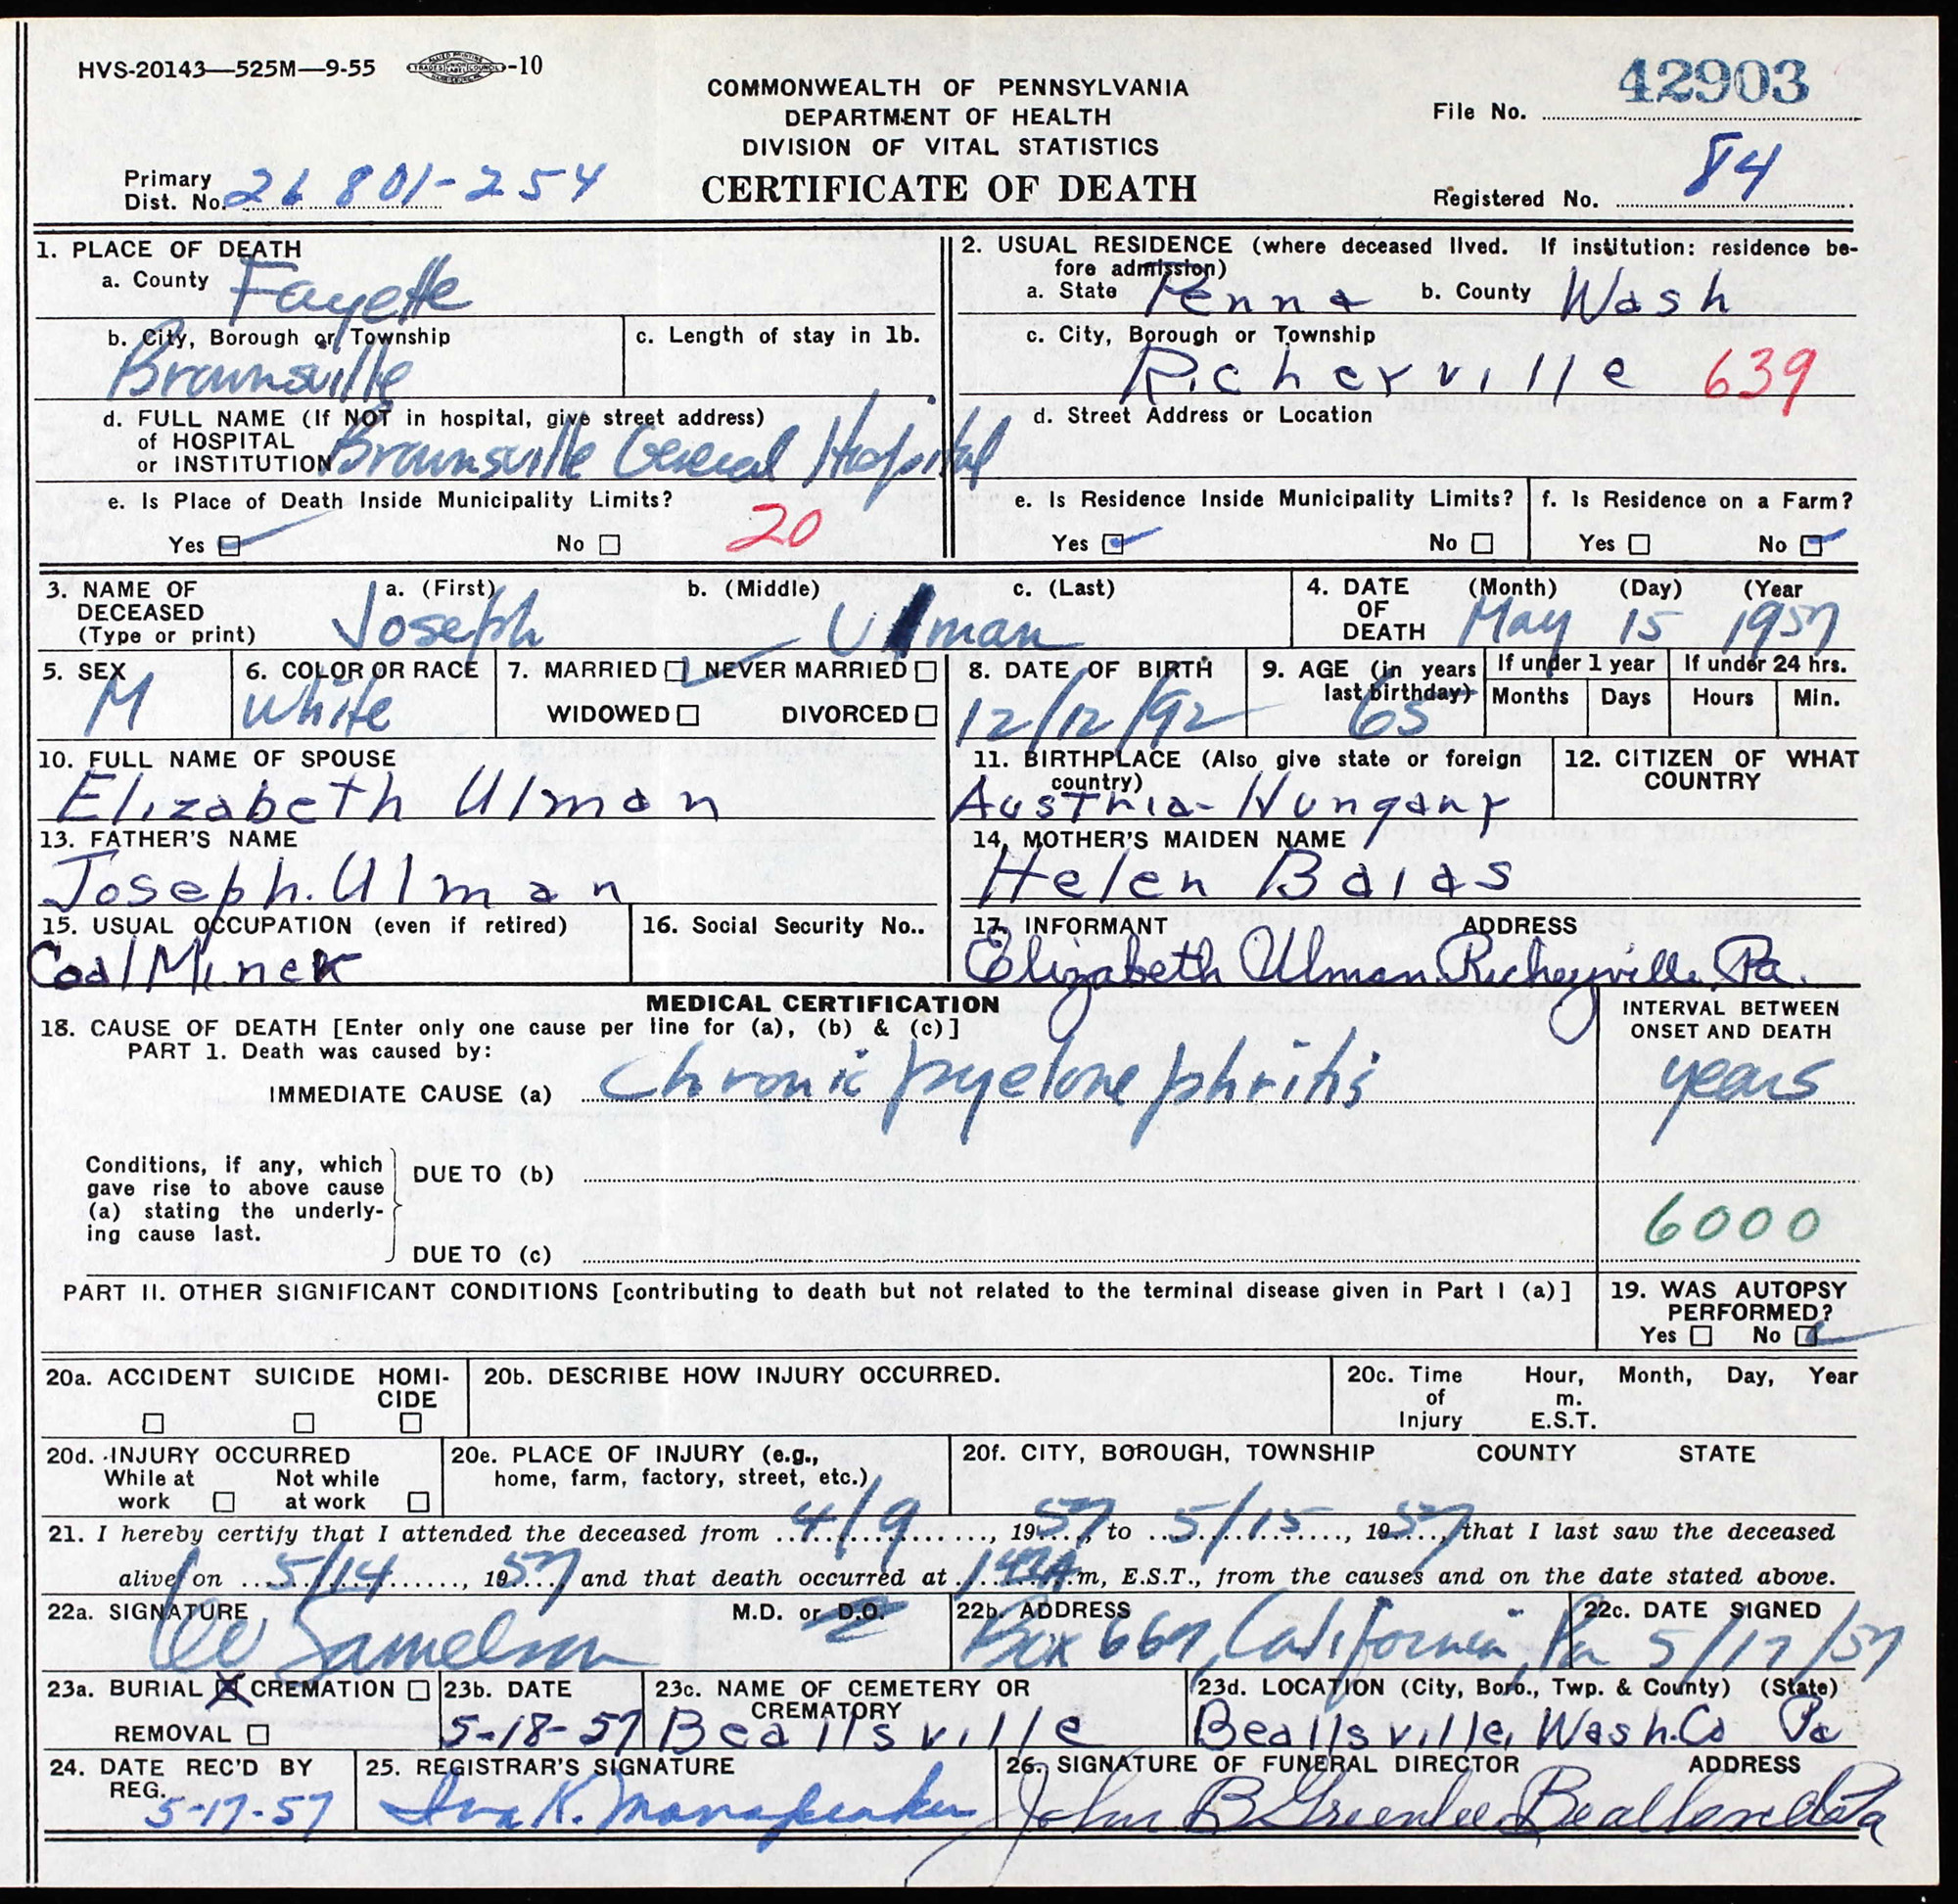 HVS-20143—525M—9-55 -10
42903
COMMONWEALTH OF PENNSYLVANIA
DEPARTMENT OF HEALTH
DIVISION OF VITAL STATISTICS
CERTIFICATE OF DEATH
File No.
Primary
Dist. No. 26 801-254
Registered No. 84
1. PLACE OF DEATH
a. County Fayette
b. City, Borough or Township
Brownsville
c. Length of stay in 1b.
d. FULL NAME (If NOT in hospital, give street address)
of HOSPITAL
or INSTITUTION Brownsville General Hospital
e. Is Place of Death Inside Municipality Limits?
20
Yes No
2. USUAL RESIDENCE (where deceased lived. If institution: residence be-
fore admission)
a. State Penna b. County Wash
c. City, Borough or Township
Richerville 639
d. Street Address or Location
e. Is Residence Inside Municipality Limits?
Yes No
f. Is Residence on a Farm?
Yes No
3. NAME OF DECEASED (Type or print)
a. (First) b. (Middle) c. (Last)
Joseph Ulman
4. DATE OF DEATH (Month) (Day) (Year
May 15 1957
5. SEX
M
6. COLOR OR RACE
White
7. MARRIED NEVER MARRIED
WIDOWED DIVORCED
8. DATE OF BIRTH
12/12/92
9. AGE (in years
last birthday)
65
If under 1 year
Months Days
If under 24 hrs.
Hours Min.
10. FULL NAME OF SPOUSE
Elizabeth Ulman
11. BIRTHPLACE (Also give state or foreign
country)
Austria-Hungary
12. CITIZEN OF WHAT
COUNTRY
13. FATHER'S NAME
Joseph. Ulman
14. MOTHER'S MAIDEN NAME
Helen Balas
15. USUAL OCCUPATION (even if retired)
Coal Miner
16. Social Security No..
17. INFORMANT ADDRESS
Elizabeth Ulman Richeyville, Pa.
MEDICAL CERTIFICATION
18. CAUSE OF DEATH [Enter only one cause per line for (a), (b) & (c)]
PART 1. Death was caused by:
IMMEDIATE CAUSE (a) Chronic pyelonephritis
INTERVAL BETWEEN
ONSET AND DEATH
years
Conditions, if any, which
gave rise to above cause
(a) stating the underly-
ing cause last.
DUE TO (b)
DUE TO (c)
6000
PART II. OTHER SIGNIFICANT CONDITIONS [contributing to death but not related to the terminal disease given in Part I (a)]
19. WAS AUTOPSY
PERFORMED?
Yes No
20a. ACCIDENT SUICIDE HOMI-
CIDE
20b. DESCRIBE HOW INJURY OCCURRED.
20c. Time of Injury
Hour, Month, Day, Year
m.
E.S.T.
20d. INJURY OCCURRED
While at work Not while at work
20e. PLACE OF INJURY (e.g.,
home, farm, factory, street, etc.)
20f. CITY, BOROUGH, TOWNSHIP COUNTY STATE
21. I hereby certify that I attended the deceased from 4/9, 1957, to 5/15, 1957, that I last saw the deceased
alive on 5/14, 1957 and that death occurred at m, E.S.T., from the causes and on the date stated above.
22a. SIGNATURE M.D. or D.O.
Samelson
22b. ADDRESS
Box 667, California, Pa
22c. DATE SIGNED
5/17/57
23a. BURIAL CREMATION
REMOVAL
23b. DATE
5-18-57
23c. NAME OF CEMETERY OR
CREMATORY
Beallsville
23d. LOCATION (City, Boro., Twp. & County) (State)
Beallsville, Wash. Co Pa
24. DATE REC'D BY
REG.
5-17-57
25. REGISTRAR'S SIGNATURE
Iva K.
26. SIGNATURE OF FUNERAL DIRECTOR ADDRESS
John B Greenlee Pa